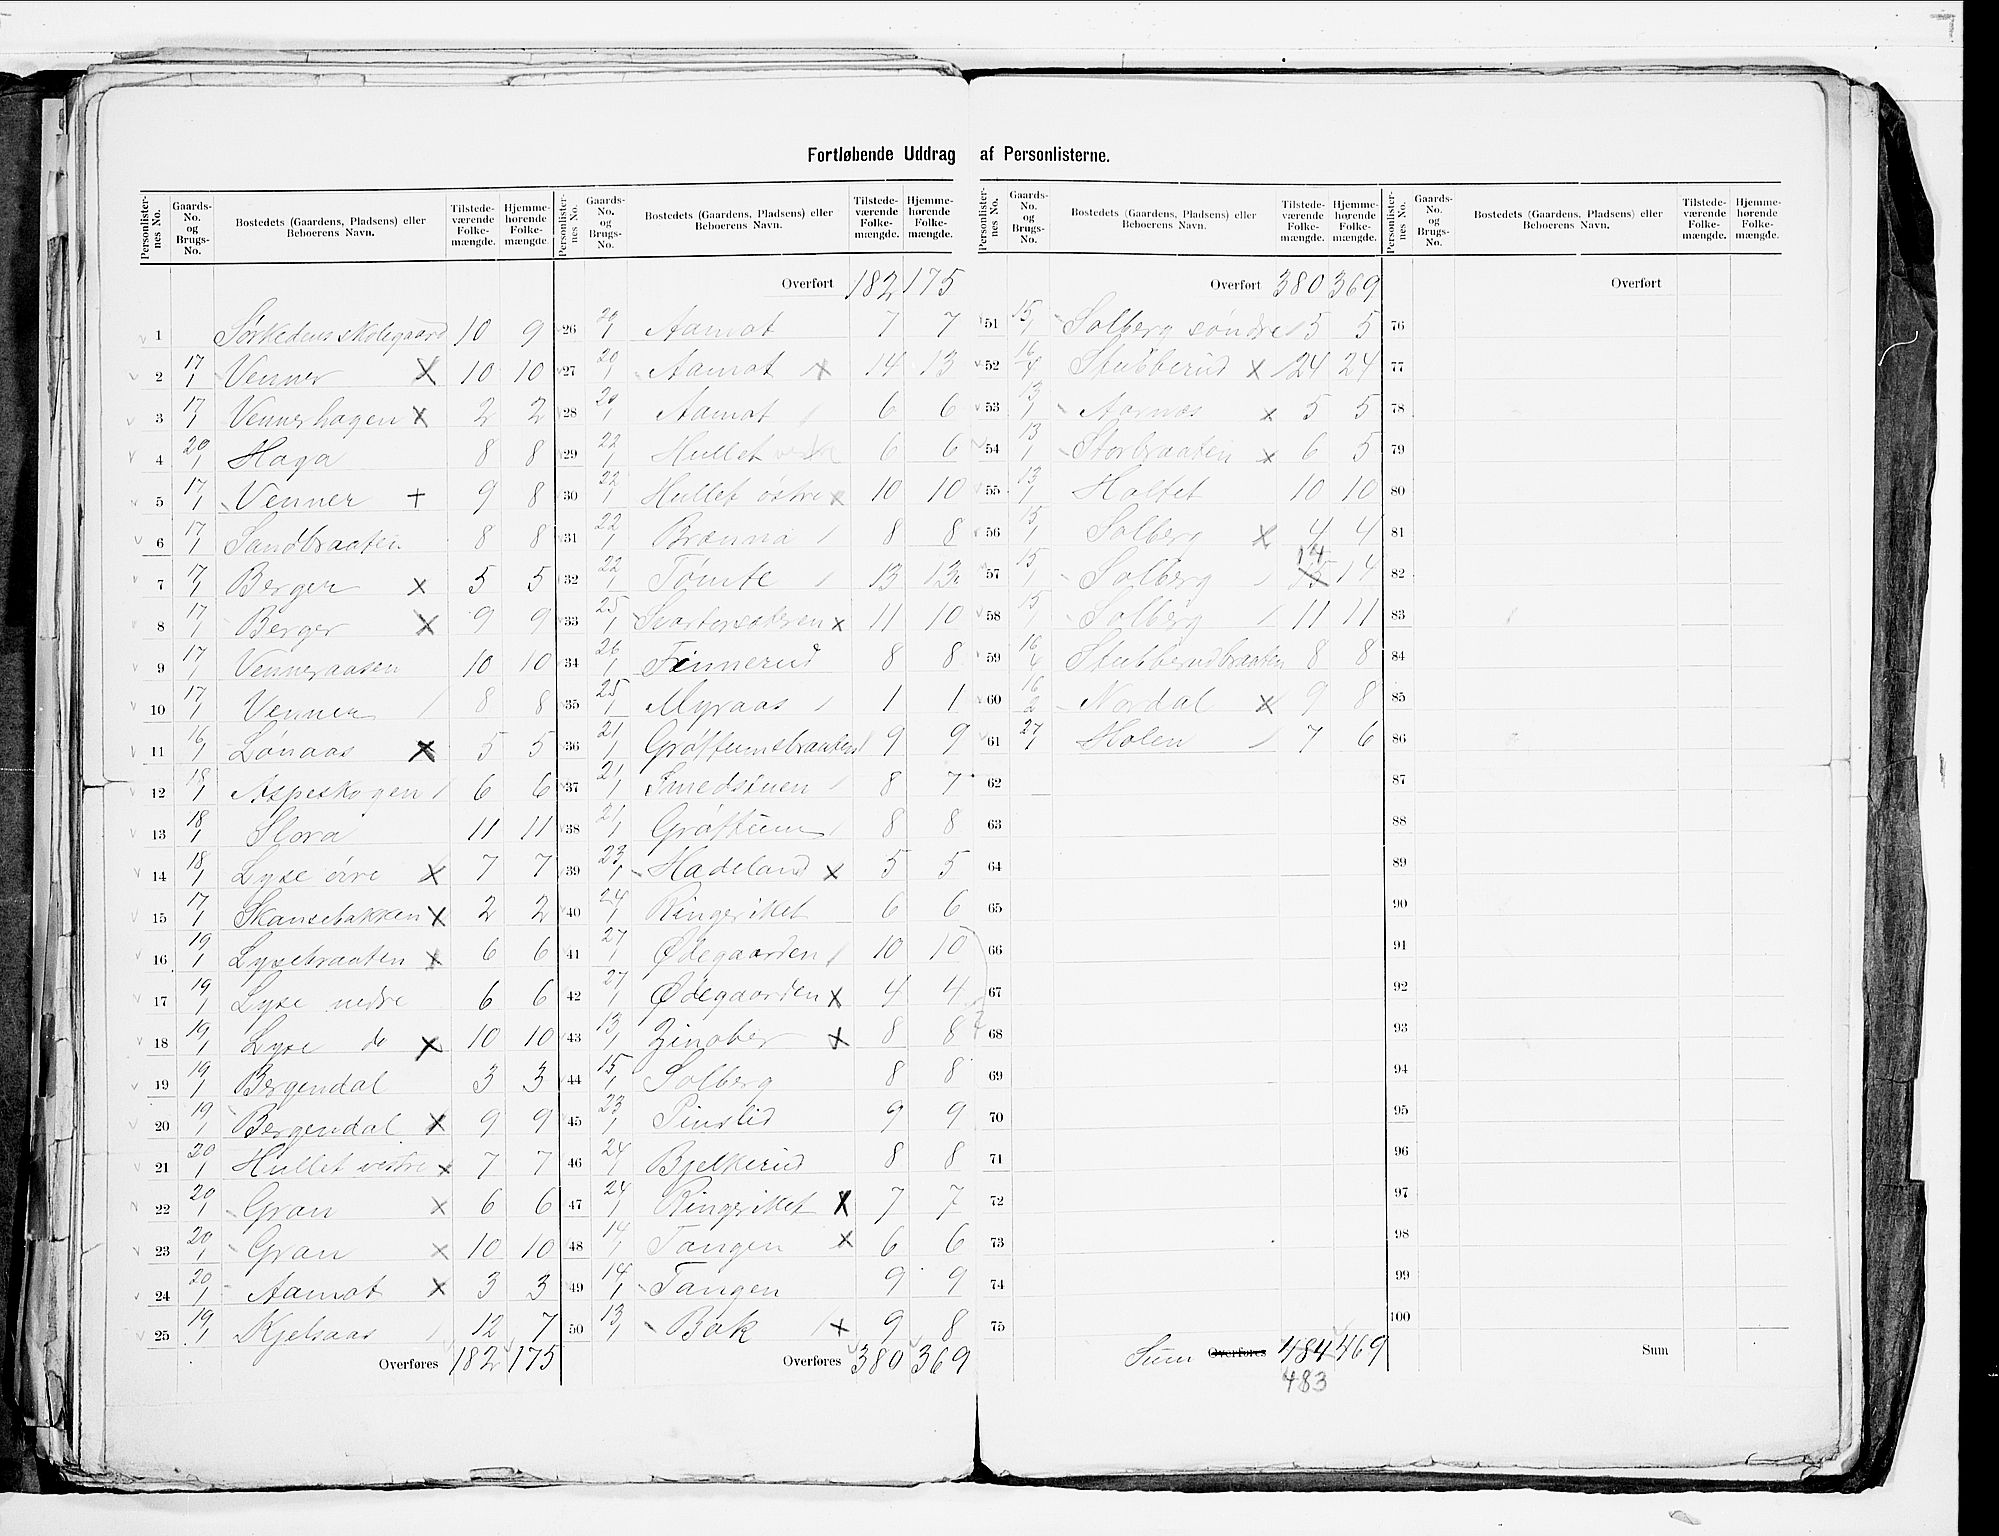 Fortløbende Uddrag af Personlisterne.
Personlisternes No. Gaards-No. og Brugs-No. Bostedets (Gaardens, Pladsens) eller Beboerens Navn. Tilstedeværende Folkemængde. Hjemmehørende Folkemængde.
1 Sørkedens skolegaard 10 9
2 17/1 Venner X 10 10
3 17/1 Vennerhagen X 2 2
4 20/1 Haga 8 8
5 17/1 Venner + 9 8
6 17/1 Sandbraaten 8 8
7 17/1 Berger X 5 5
8 17/1 Berger X 9 9
9 17/1 Venneraasen 10 10
10 17/1 Venner / 8 8
11 16/1 Lønaas X 5 5
12 18/1 Aspeskogen / 6 6
13 18/1 Slora 11 11
14 18/1 Lyse övre X 7 7
15 17/1 Skansebakken X 2 2
16 19/1 Lysebraaten X 6 6
17 19/1 Lyse nedre 6 6
18 19/1 Lyse do X 10 10
19 19/1 Bergendal 3 3
20 19/1 Bergendal X 9 9
21 20/1 Hullet vestre X 7 7
22 20/1 Gran X 6 6
23 20/1 Gran X 10 10
24 20/1 Aamot X 3 3
25 19/1 Kjelsaas / 12 7
Overføres 182 175
Personlisternes No. Gaards-No. og Brugs-No. Bostedets (Gaardens, Pladsens) eller Beboerens Navn. Tilstedeværende Folkemængde. Hjemmehørende Folkemængde.
Overført 182 175
26 20/1 Aamot 7 7
27 20/1 Aamot X 14 13
28 20/1 Aamot / 6 6
29 22/1 Hullet vestre 6 6
30 22/1 Hullet østre X 10 10
31 22/1 Brænna / 8 8
32 22/1 Tømte / 13 13
33 25/1 Svartorsæteren X 11 10
34 26/1 Finnerud 8 8
35 25/1 Myraas / 1 1
36 21/1 Grøttumsbraaten 9 9
37 21/1 Smedstuen / 8 7
38 21/1 Grøttum / 8 8
39 23/1 Hadeland X 5 5
40 24/1 Ringeriket 6 6
41 27/1 Ødegaarden / 10 10
42 27/1 Ødegaarden X 4 4
43 13/1 Zinober X 8 8
44 15/1 Solberg 8 8
45 23/1 Pinslid 9 9
46 24/1 Bjelkerud 8 8
47 24/1 Ringeriket X 7 7
48 14/1 Tangen X 6 6
49 14/1 Tangen 9 9
50 13/1 Bak / X 9 8
Overføres 380 369
Personlisternes No. Gaards-No. og Brugs-No. Bostedets (Gaardens, Pladsens) eller Beboerens Navn. Tilstedeværende Folkemængde. Hjemmehørende Folkemængde.
Overført 380 369
51 15/1 Solberg søndre / 5 5
52 16/4 Stubberud X 24 24
53 13/1 Aarnæs X 5 5
54 13/1 Storbraaten X 6 5
55 13/1 Holtet 10 10
56 15/1 Solberg X 4 4
57 15/1 Solberg / 15 14 14
58 15/1 Solberg / 11 11
59 16/4 Stubberudbraaten 8 8
60 16/2 Nordal X 9 8
61 27/1 Holen / 7 6
62
63
64
65
66
67
68
69
70
71
72
73
74
75
Sum Overføres 484 469
483
Personlisternes No. Gaards-No. og Brugs-No. Bostedets (Gaardens, Pladsens) eller Beboerens Navn. Tilstedeværende Folkemængde. Hjemmehørende Folkemængde.
Overført
76
77
78
79
80
81
82
83
84
85
86
87
88
89
90
91
92
93
94
95
96
97
98
99
100
Sum